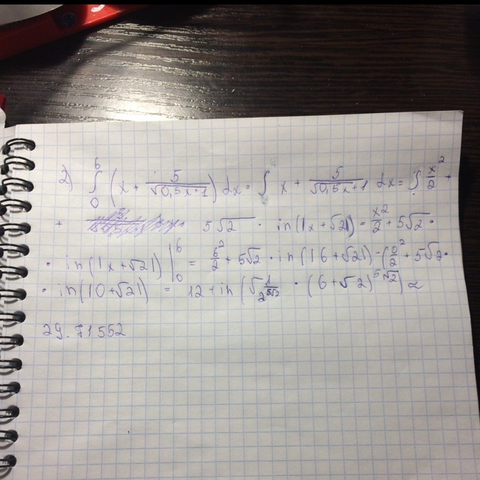 2) ∫₀⁶ (x + 5/√0,5x+1) dx = ∫ x + 5/√0,5x+1 dx = ∫ x²/2 +
+ 5√2 · in(|x+√2|) = x²/2 + 5√2 ·
· in(|x+√2|) |₀⁶ = 6²/2 + 5√2 · in(|6+√2|) - (0²/2 + 5√2 ·
· in(|0+√2|) = 12 + in(√1/2^5√2 · (6+√2)^5√2) ≈
29.71552